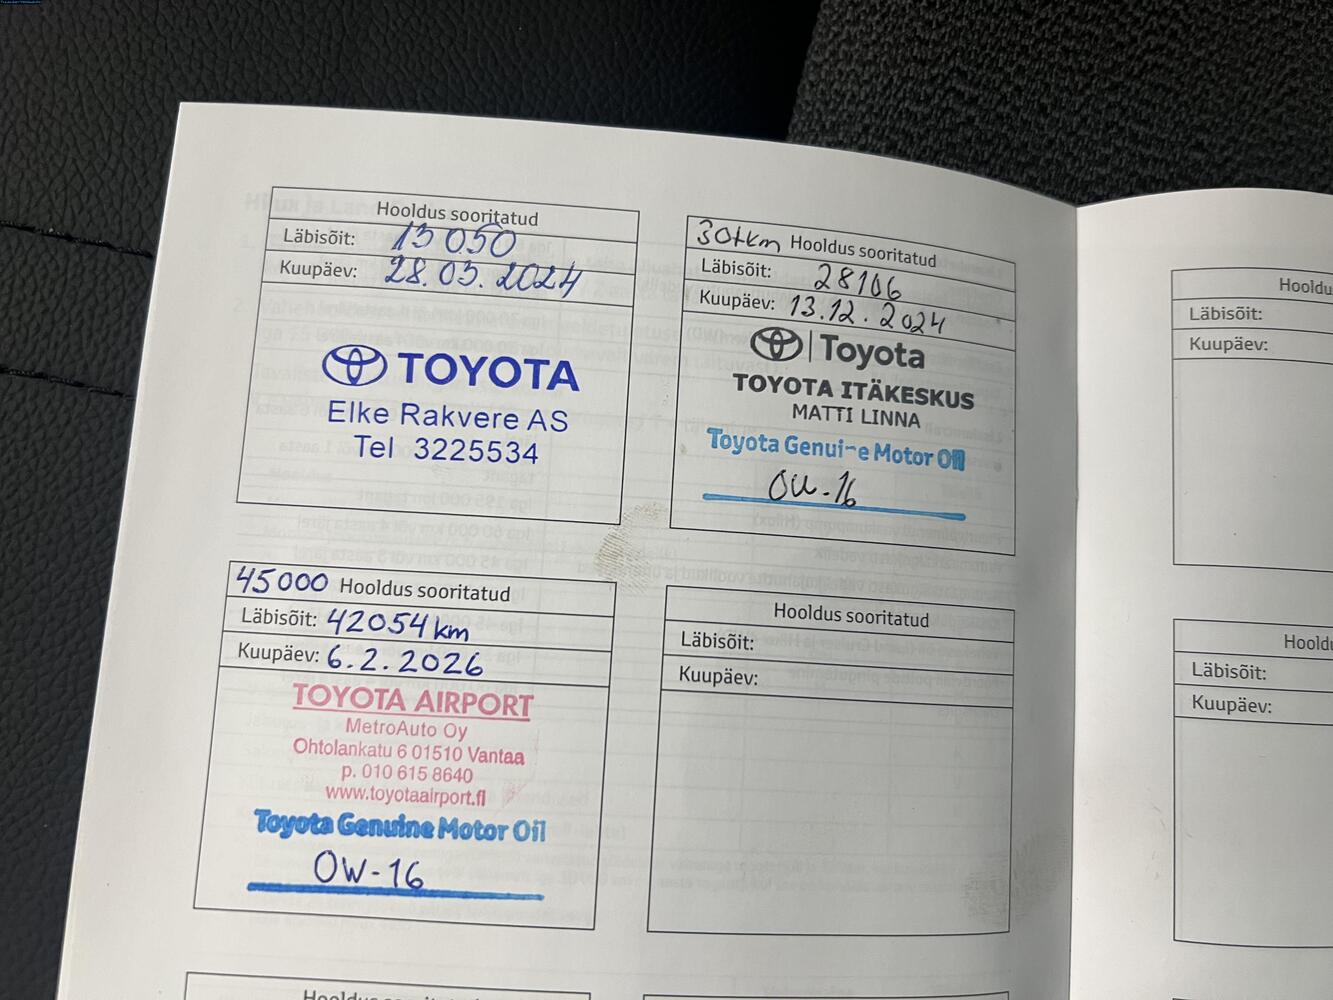 Hooldus sooritatud
Läbisõit: 13 050
Kuupäev: 28.03.2024
TOYOTA
Elke Rakvere AS
Tel 3225534
30tkm Hooldus sooritatud
Läbisõit: 28106
Kuupäev: 13.12.2024
Toyota
TOYOTA ITÄKESKUS
MATTI LINNA
Toyota Genuine Motor Oil
OW-16
45000 Hooldus sooritatud
Läbisõit: 42054 km
Kuupäev: 6.2.2026
TOYOTA AIRPORT
MetroAuto Oy
Ohtolankatu 6 01510 Vantaa
p. 010 615 8640
www.toyotaairport.fi
Toyota Genuine Motor Oil
OW-16
Hooldus sooritatud
Läbisõit:
Kuupäev:
Hooldu
Läbisõit:
Kuupäev:
Hooldu
Läbisõit:
Kuupäev:
Hooldus sooritatud